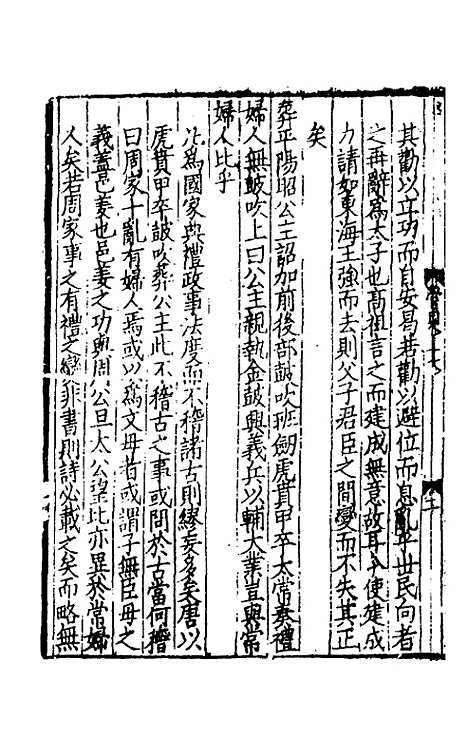 其勸以立功而自安曷若勸以避位而息亂乎世民向者
之再辭為太子也髙祖言之而建成無意故耳使建成
力請如東海王強而去則父子君臣之間變而不失其正
矣
葬平陽昭公主詔加前後部鼓吹班劒虎賁甲卒太常奏禮
婦人無鼓吹上曰公主親執金鼓興義兵以輔大業豈與常
婦人比乎
凡為國家典禮政事法度而不稽諸古則繆妄多矣唐以
虎賁甲卒鼓吹葬公主此不稽古之事或問於古當何稽
曰周家十亂有婦人焉或以為文母者或謂子無臣母之
義蓋邑姜也邑姜之功與周公旦太公望比亦異於常婦
人矣若周家事之有禮之變非書則詩必載之矣而略無